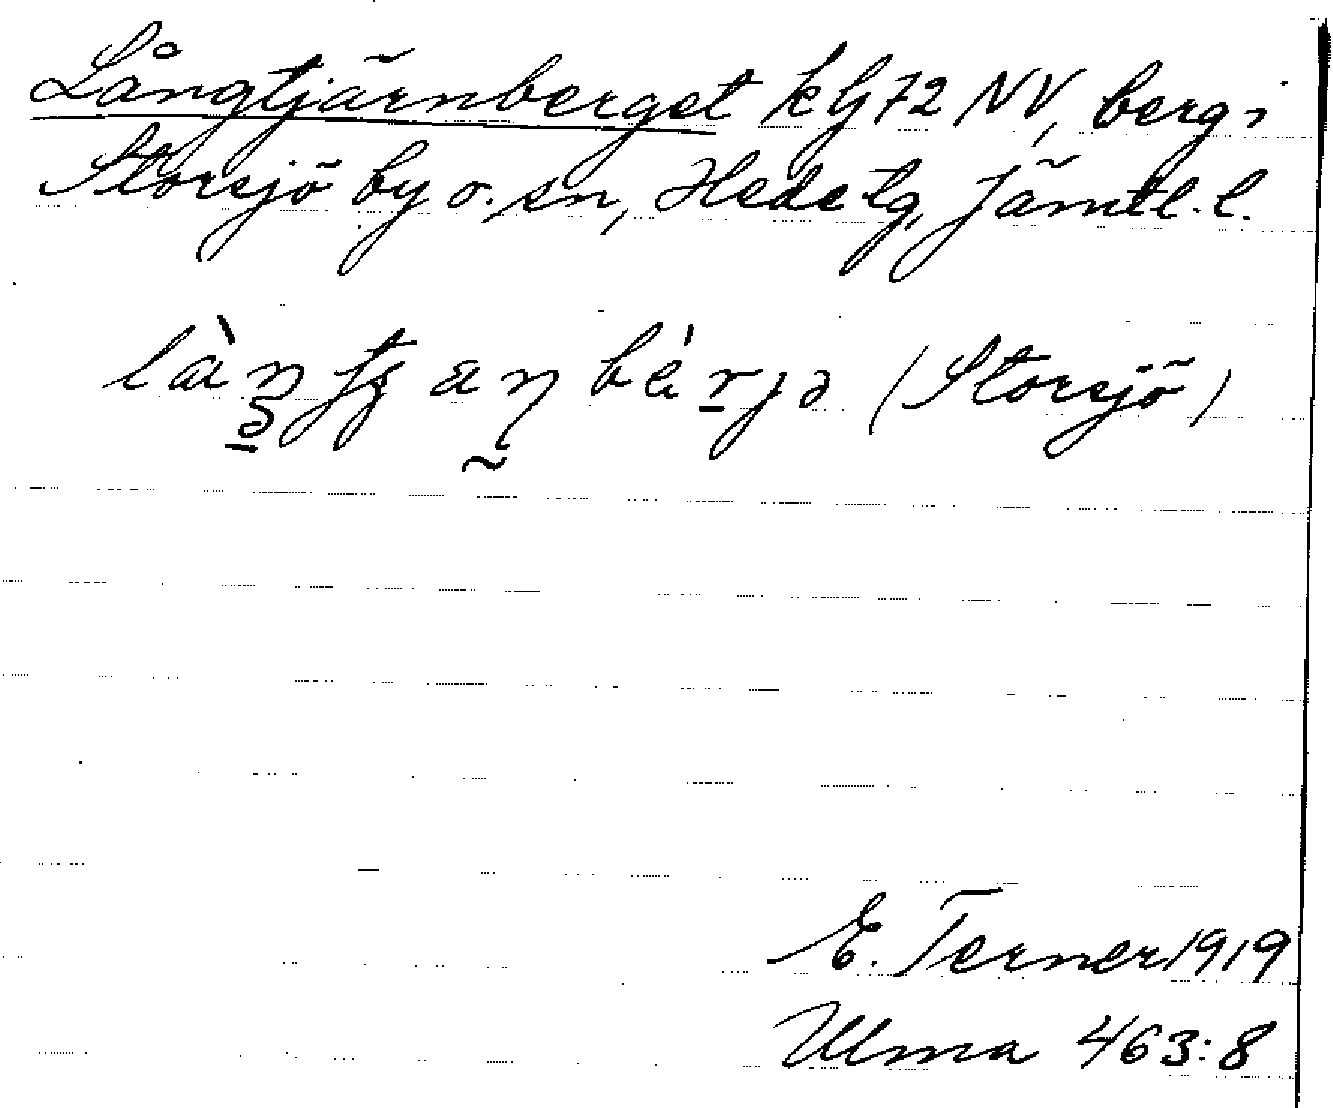 Långtjärnberget kbg 72 NV, berg i
Storsjö by o. sn, Hede tg, Jämtl. l.
(Storsjö)
E. Terner 1919
Ulma 463:8